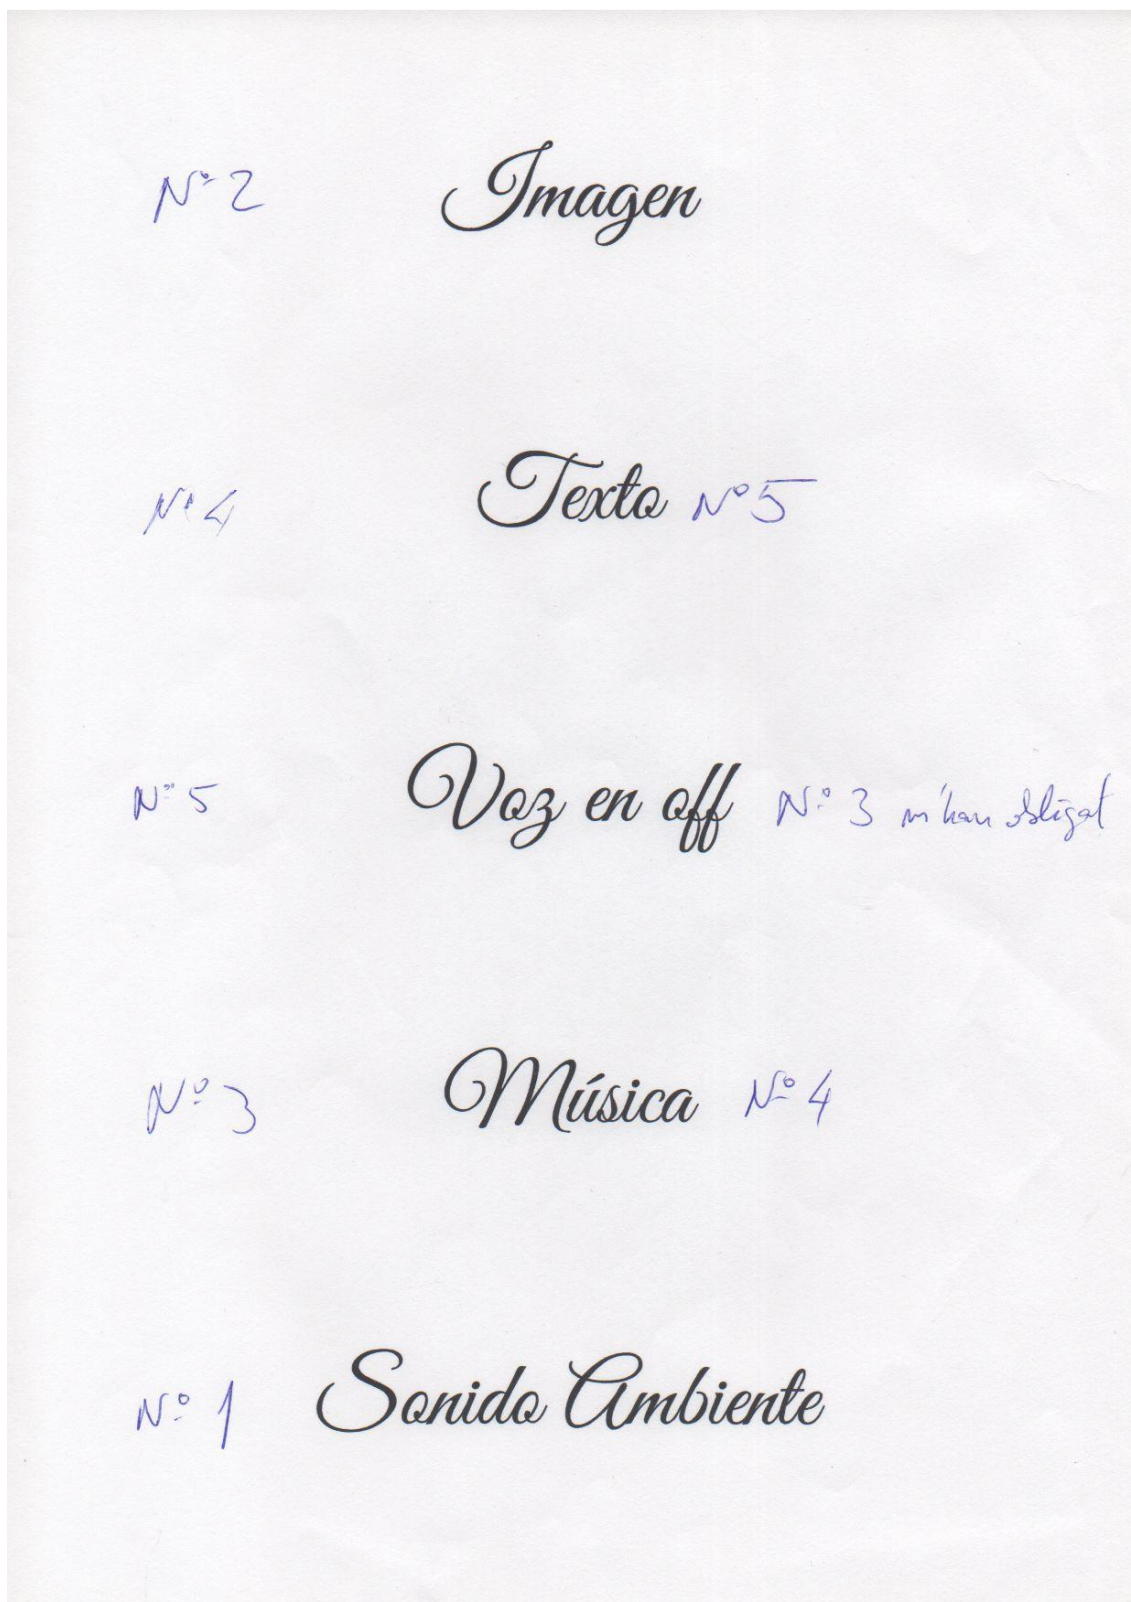 Nº 2 Imagen
Nº 4 Texto Nº 5
Nº 5 Voz en off Nº 3 m'han obligat
Nº 3 Música Nº 4
Nº 1 Sonido Ambiente